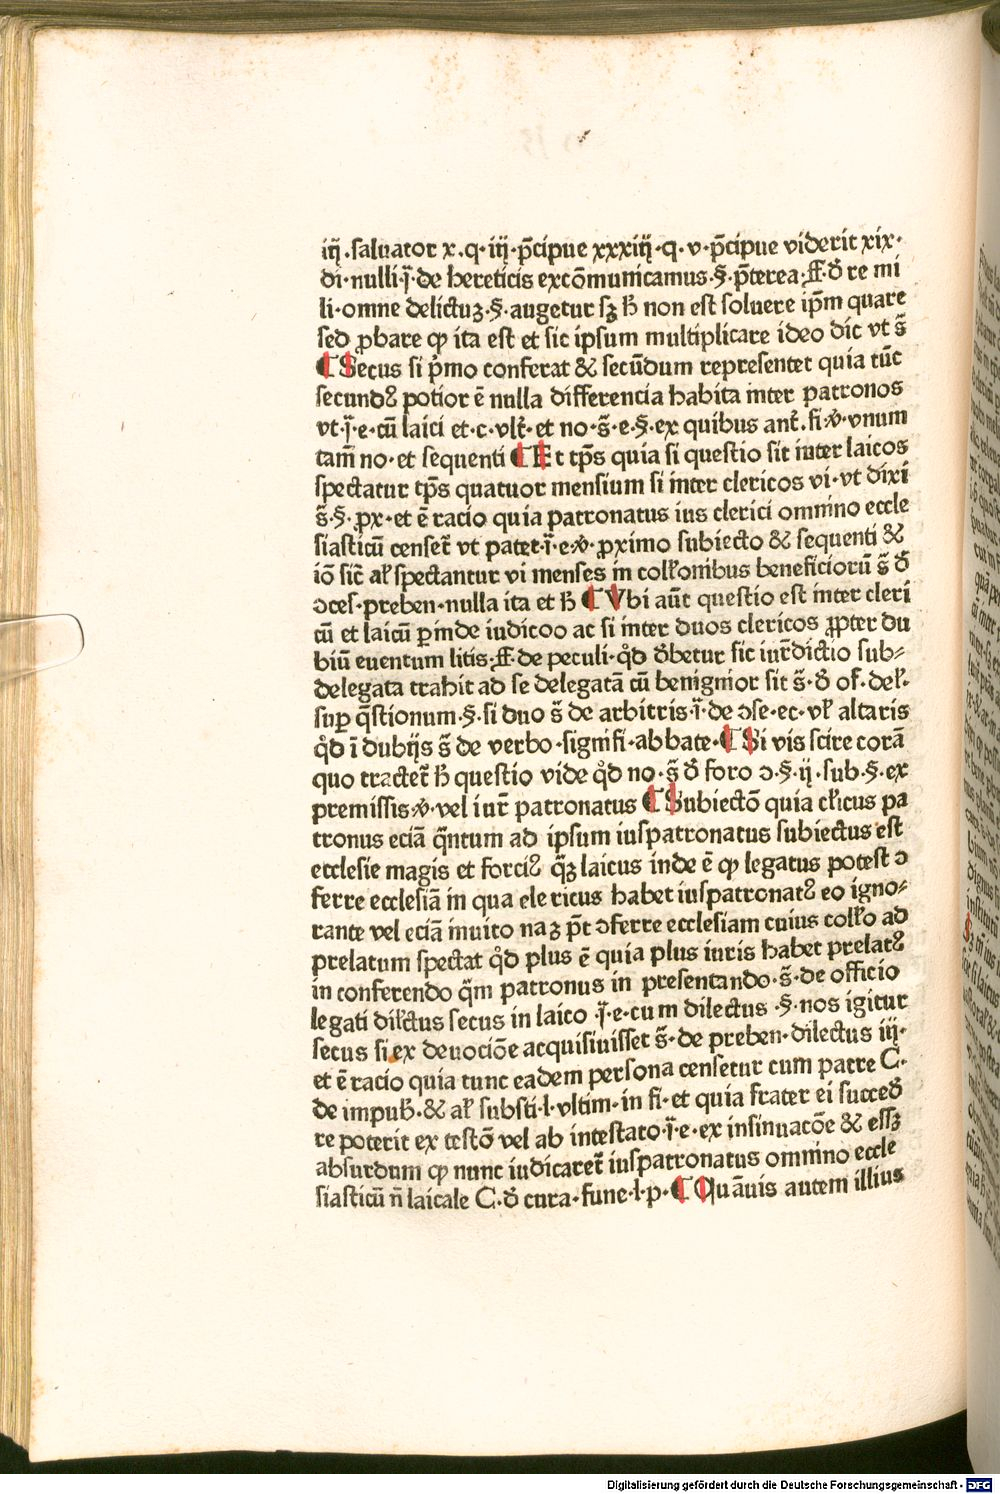 iij̄.saluator x.q.iij.p̄cipue xxxiij.q.v.p̄cipue viderit xix.
di.nulli.j̄.de hereticis excōmunicamus.§.p̄terea.ff.ꝺ̄ re mi
li.omne delictuꝫ.§.augetur sꝫ h̄ non est soluere ip̄m quare
sed ꝓbare ꝙ ita est et sic ipsum multiplicare ideo dic vt s̄
¶ Secus si p̄mo conferat & secūdum representet quia tūc
secundꝰ potior ē nulla differencia habita inter patronos
vt.j̄.e.cū laici et.c.vlt̄.et no.s̄.e.§.ex quibus ant̄.fi.ꝟ.vnum
tam̄ no.et sequenti ¶ Et tp̄s quia si questio sit inter laicos
spectatur tp̄s quatuor mensium si inter clericos vi.vt dixi
s̄.§.ꝓx.et ē racio quia patronatus ius clerici omnino eccle
siasticū censet̄ vt patet.ī.e.ꝟ.ꝓximo subiecto & sequenti &
iō sic̄ al̄ spectantur vi menses in coll̄onibus beneficiorū s̄ ꝺ̄
ↄces.preben.nulla ita et h̄ ¶ Vbi aūt questio est inter cleri
cū et laicū ꝑinde iudicoo ac si inter duos clericos ꝓpter du
biū euentum litis.ff.de peculi.qͦd ꝺ̄betur sic iur̄dictio sub-
delegata trahit ad se delegatā cū benignior sit s̄.ꝺ̄ of.del̄.
suꝑ q̄stionum.§.si duo s̄ de arbitris.ī.de ↄse.ec.vl̄ altaris
qͦd ī dubijs s̄ de verbo.signifi.abbate.¶ Si vis scire corā
quo tractet̄ h̄ questio vide qͦd no.s̄ ꝺ̄ foro ↄ.§.ij.sub.§.ex
premissis.ꝟ.vel iur̄ patronatus ¶ Subiectō quia cl̄icus pa
tronus eciā q̄ntum ad ipsum iuspatronatus subiectus est
ecclesie magis et forciꝰ q̄ꝫ laicus inde ē ꝙ legatus potest ↄ
ferre ecclesiā in qua ele ricus habet iuspatronatꝰ eo igno-
rante vel eciā inuito naꝫ p̄t ↄferre ecclesiam cuius coll̄o ad
prelatum spectat qͦd plus ē quia plus iuris habet prelatꝰ
in conferendo q̄m patronus in presentando.s̄.de officio
legati dil̄ctus secus in laico.j̄.e.cum dilectus.§.nos igitur
secus si ex deuociōe acquisiuisset s̄.de preben.dilectus iij.
et ē racio quia tunc eadem persona censetur cum patre C.
de impub̄.& al̄ substi.l.vltim.in fi.et quia frater ei succedꝺ̄
re poterit ex testō vel ab intestato.j̄.e.ex insinuacōe & essꝫ
absurdum ꝙ nunc iudicaret̄ iuspatronatus omnino eccle
siasticū n̄ laicale C.ꝺ̄ cura.fune.l.p.¶ Quāuis autem illius
Digitalisierung gefördert durch die Deutsche Forschungsgemeinschaft - DFG